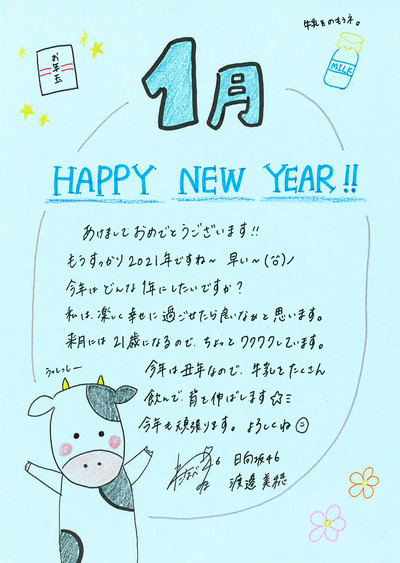 牛乳をのもうネ。
お年玉
MILK
1月
HAPPY NEW YEAR!!
あけましておめでとうございます!!
もうすっかり2021年ですね〜 早い〜
今年はどんな1年にしたいですか?
私は、楽しく幸せに過ごせたら良いなぁと思います。
来月には21歳になるので、ちょっとワクワクしています。
うっしっしー
今年は丑年なので、牛乳をたくさん
飲んで、背を伸ばします☆ミ
今年も頑張ります。よろしくね
日向坂46
渡邉美穂